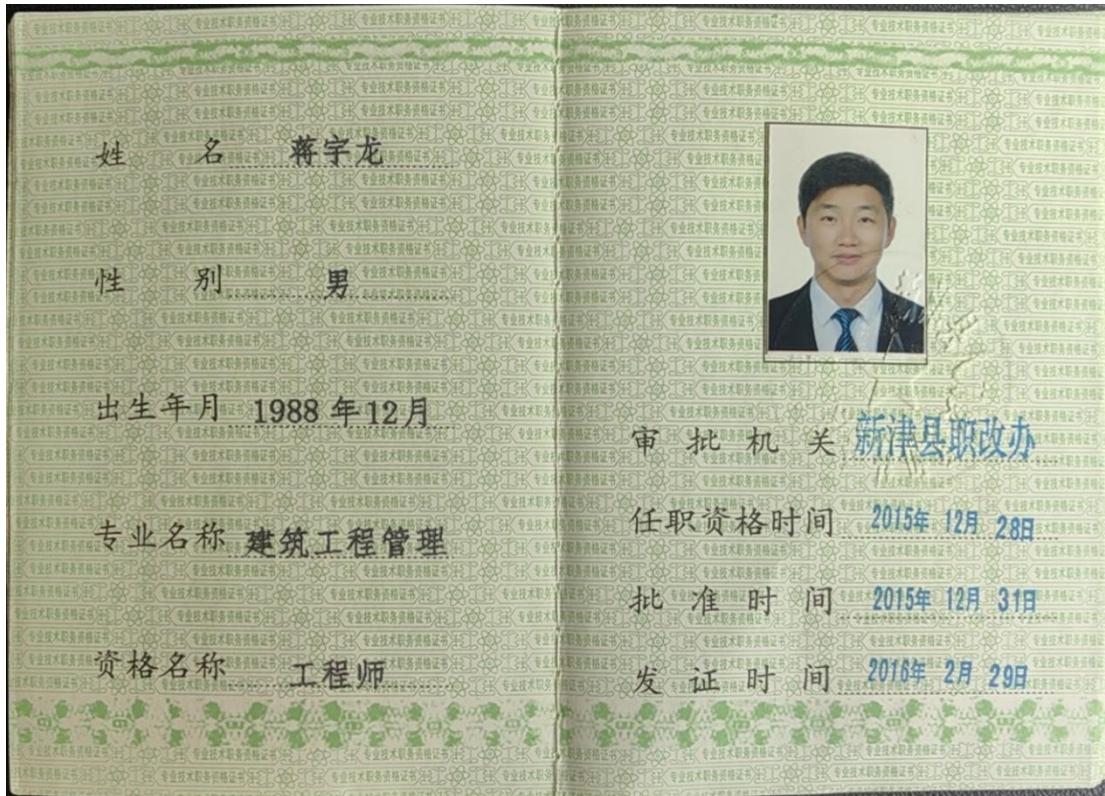 姓名 蒋宇龙
性别 男
出生年月 1988年12月
专业名称 建筑工程管理
资格名称 工程师
审批机关 新津县职改办
任职资格时间 2015年 12月 28日
批准时间 2015年 12月 31日
发证时间 2016年 2月 29日
专业技术职务资格证书